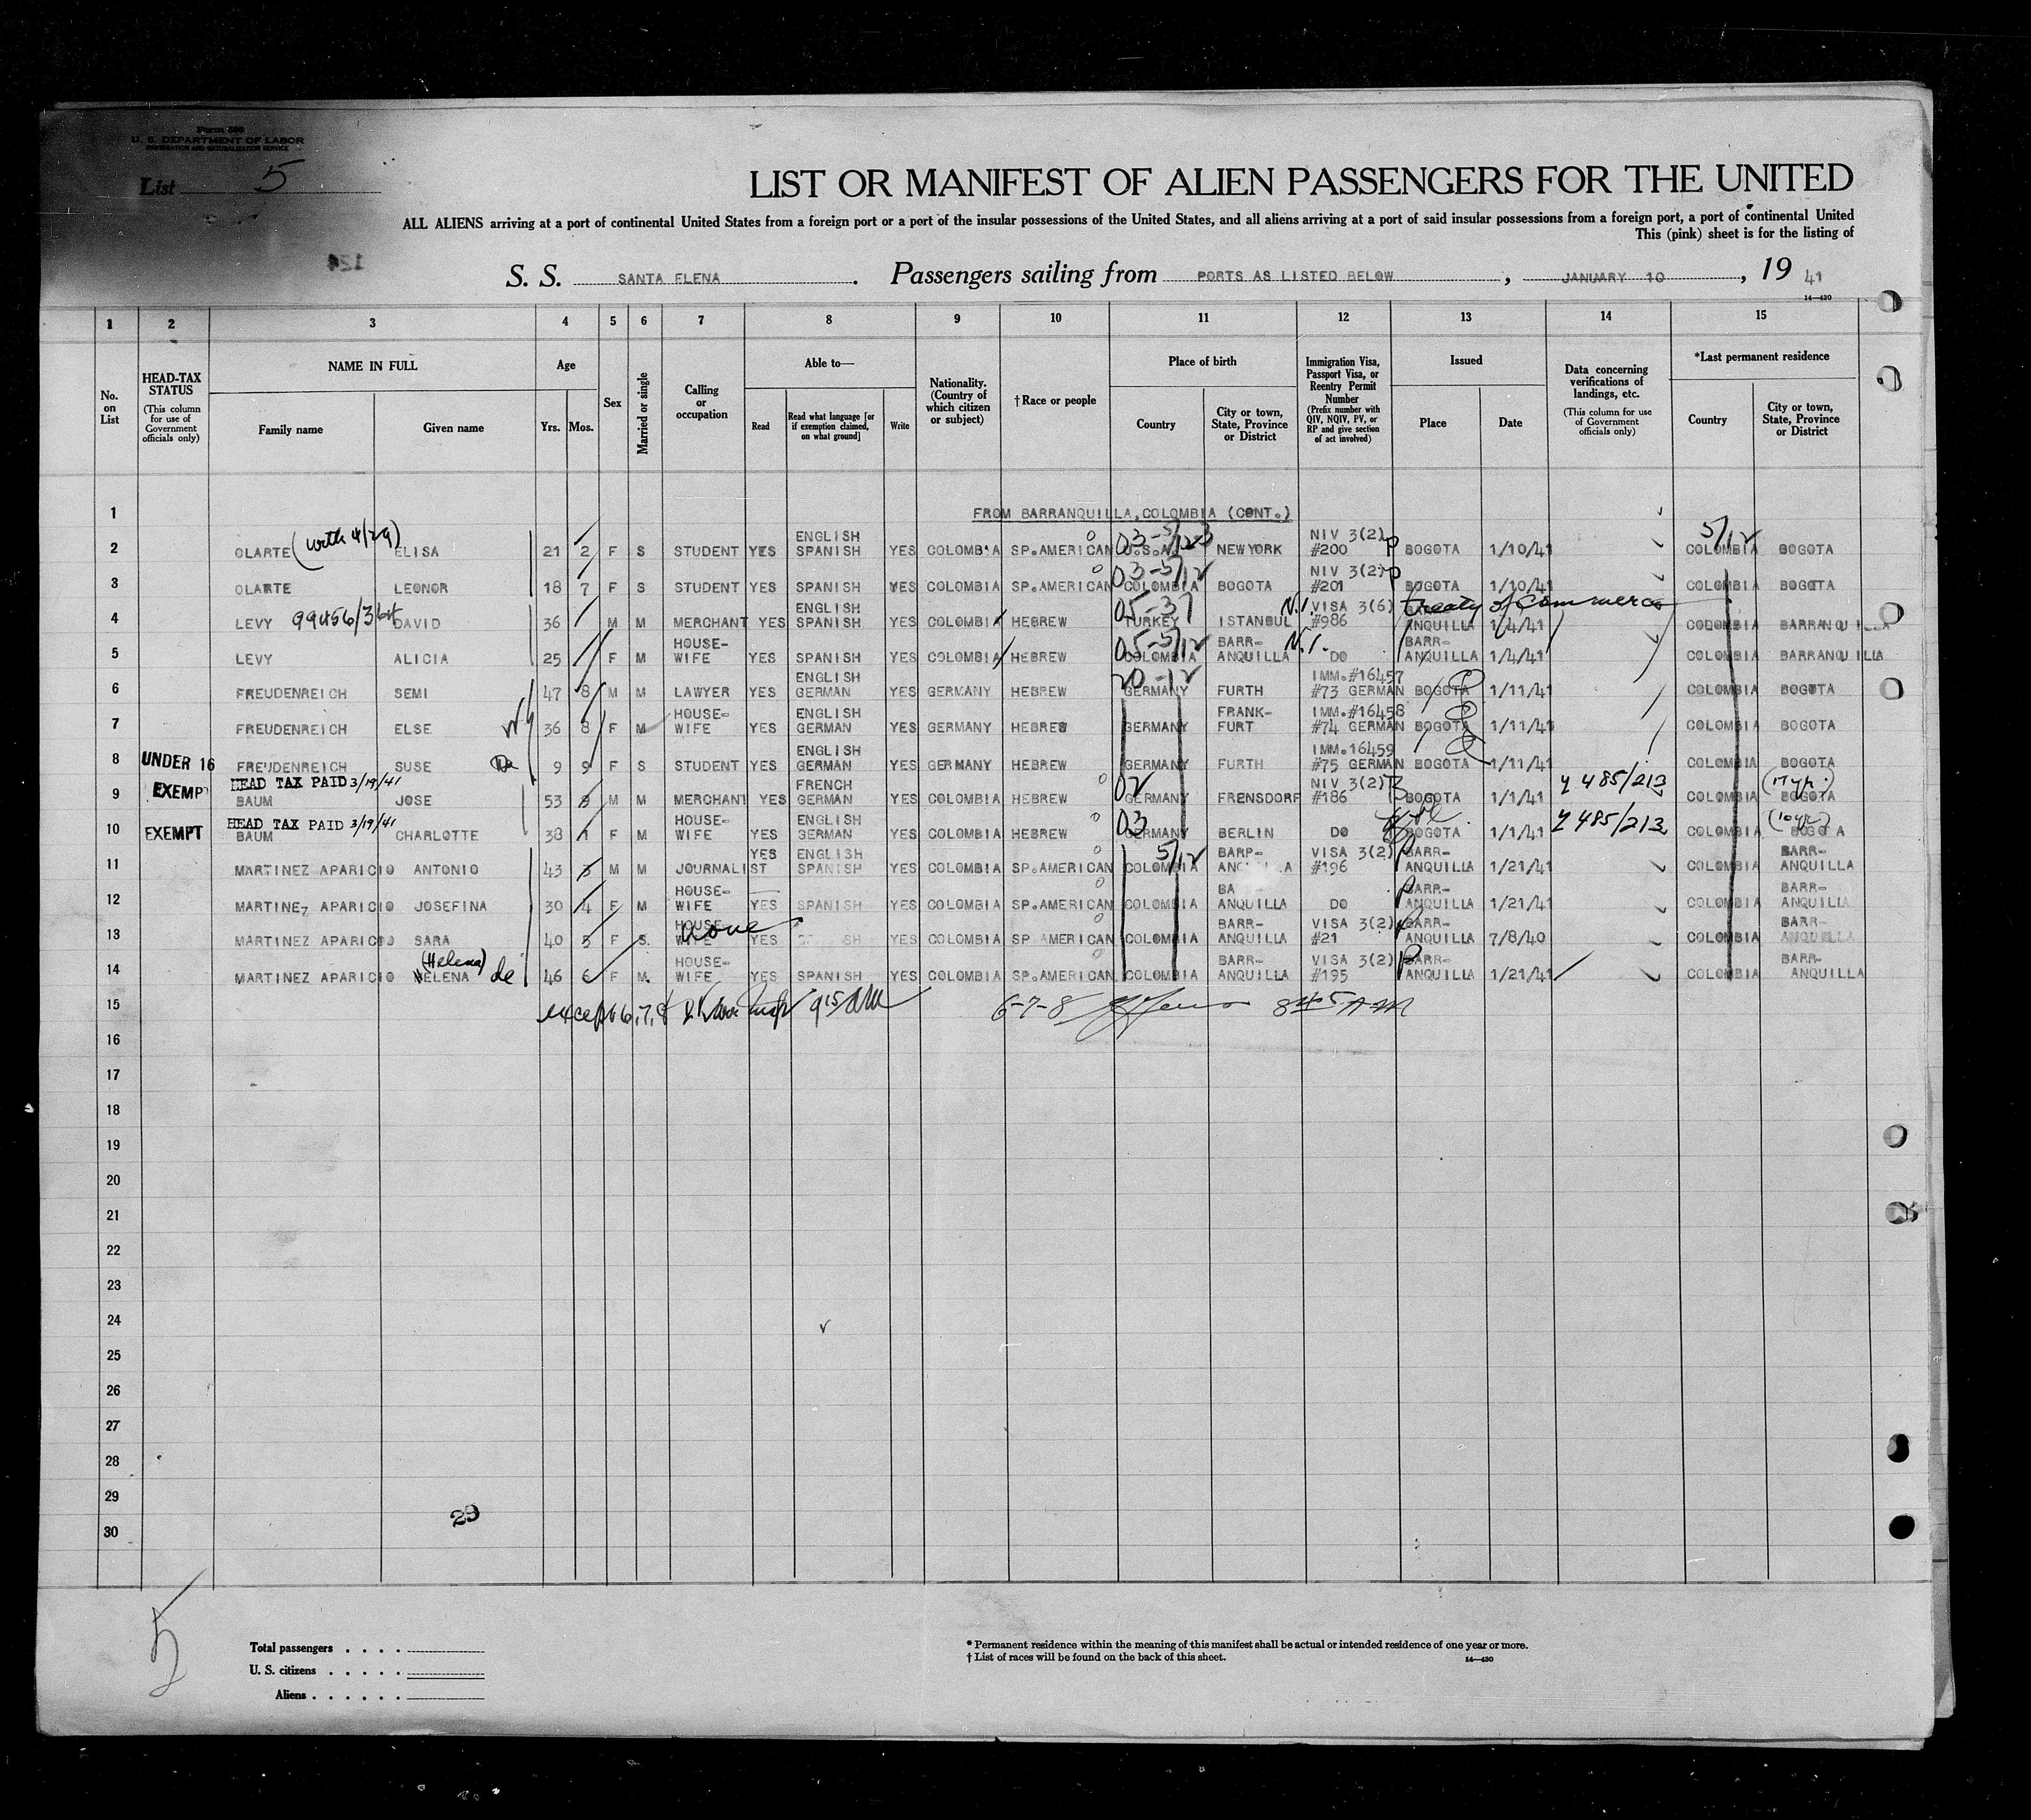 Form 500
U. S. DEPARTMENT OF LABOR
IMMIGRATION AND NATURALIZATION SERVICE
List 5
LIST OR MANIFEST OF ALIEN PASSENGERS FOR THE UNITED
ALL ALIENS arriving at a port of continental United States from a foreign port or a port of the insular possessions of the United States, and all aliens arriving at a port of said insular possessions from a foreign port, a port of continental United
This (pink) sheet is for the listing of
124
S. S. SANTA ELENA. Passengers sailing from PORTS AS LISTED BELOW, JANUARY 10, 19 41
14—430
1 2 3 4 5 6 7 8 9 10 11 12 13 14 15
No. on List
HEAD-TAX STATUS (This column for use of Government officials only)
NAME IN FULL Family name Given name
Age Yrs. Mos.
Sex
Married or single
Calling or occupation
Able to— Read Read what language [or if exemption claimed, on what ground] Write
Nationality. (Country of which citizen or subject)
† Race or people
Place of birth Country City or town, State, Province or District
Immigration Visa, Passport Visa, or Reentry Permit Number (Prefix number with QIV, NQIV, PV, or RP and give section of act involved)
Issued Place Date
Data concerning verifications of landings, etc. (This column for use of Government officials only)
*Last permanent residence Country City or town, State, Province or District
1 FROM BARRANQUILLA, COLOMBIA (CONT.)
2 OLARTE (with 4/29) ELISA 21 2 F S STUDENT YES ENGLISH SPANISH YES COLOMBIA SP.AMERICAN U.S.A. NEWYORK NIV 3(2) #200 P BOGOTA 1/10/41 5/12 COLOMBIA BOGOTA
3 OLARTE LEONOR 18 7 F S STUDENT YES SPANISH YES COLOMBIA SP.AMERICAN 03-5/12 COLOMBIA BOGOTA NIV 3(2) P #201 BOGOTA 1/10/41 COLOMBIA BOGOTA
4 LEVY 99456/364 DAVID 36 M M MERCHANT YES ENGLISH SPANISH YES COLOMBIA HEBREW 05-37 TURKEY ISTANBUL N.I. VISA 3(6) #986 Treaty of Commerce ANQUILLA 1/4/41 COLOMBIA BARRANQUILLA
5 LEVY ALICIA 25 F M HOUSE-WIFE YES SPANISH YES COLOMBIA HEBREW 05-5/12 COLOMBIA BARR-ANQUILLA N.I. DO BARR-ANQUILLA 1/4/41 COLOMBIA BARRANQUILLA
6 FREUDENREICH SEMI 47 8 M M LAWYER YES ENGLISH GERMAN YES GERMANY HEBREW 20-12 GERMANY FURTH IMM.#16457 #73 GERMAN BOGOTA 1/11/41 COLOMBIA BOGOTA
7 FREUDENREICH ELSE 36 8 F M HOUSE-WIFE YES ENGLISH GERMAN YES GERMANY HEBREW GERMANY FRANK-FURT IMM.#16458 #74 GERMAN BOGOTA 1/11/41 COLOMBIA BOGOTA
8 UNDER 16 FREUDENREICH SUSE 9 9 F S STUDENT YES ENGLISH GERMAN YES GERMANY HEBREW GERMANY FURTH IMM.16459 #75 GERMAN BOGOTA 1/11/41 COLOMBIA BOGOTA
HEAD TAX PAID 3/19/41
9 EXEMP BAUM JOSE 53 M M MERCHANT YES FRENCH GERMAN YES COLOMBIA HEBREW 02 GERMANY FRENSDORF NIV 3(2) #186 BOGOTA 1/1/41 485/213 COLOMBIA BOGOTA
HEAD TAX PAID 3/19/41
10 EXEMPT BAUM CHARLOTTE 38 1 F M HOUSE-WIFE YES ENGLISH GERMAN YES COLOMBIA HEBREW 03 GERMANY BERLIN DO BOGOTA 1/1/41 485/213 COLOMBIA
11 MARTINEZ APARICIO ANTONIO 43 3 M M JOURNALIST YES ENGLISH SPANISH YES COLOMBIA SP.AMERICAN 5/12 COLOMBIA VISA 3(2) #196 BARR-ANQUILLA 1/21/41 COLOMBIA BARR-ANQUILLA
12 MARTINEZ APARICIO JOSEFINA 30 4 F M HOUSE-WIFE YES SPANISH YES COLOMBIA SP.AMERICAN COLOMBIA ANQUILLA DO BARR-ANQUILLA 1/21/41 COLOMBIA BARR-ANQUILLA
13 MARTINEZ APARICIO SARA 40 5 F S. none YES YES COLOMBIA SP AMERICAN COLOMBIA BARR-ANQUILLA VISA 3(2) #21 BARR-ANQUILLA 7/8/40 COLOMBIA BARR-ANQUILLA
14 MARTINEZ APARICIO (Helena) HELENA de 46 6 F M. HOUSE-WIFE YES SPANISH YES COLOMBIA SP.AMERICAN COLOMBIA BARR-ANQUILLA VISA 3(2) #195 BARR-ANQUILLA 1/21/41 COLOMBIA BARR-ANQUILLA
15 except 6,7,8 9 15 AM 6-7-8 8 45 AM
16
17
18
19
20
21
22
23
24
25
26
27
28
29
30
29
5
Total passengers
U. S. citizens
Aliens
* Permanent residence within the meaning of this manifest shall be actual or intended residence of one year or more.
† List of races will be found on the back of this sheet.
14—430